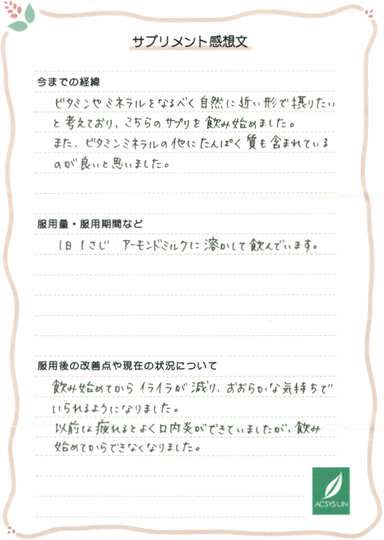 サプリメント感想文
今までの経緯
ビタミンやミネラルをなるべく自然に近い形で摂りたい
と考えており、こちらのサプリを飲み始めました。
また、ビタミンミネラルの他にたんぱく質も含まれている
のが良いと思いました。
服用量・服用期間など
1日1さじ アーモンドミルクに溶かして飲んでいます。
服用後の改善点や現在の状況について
飲み始めてからイライラが減り、おおらかな気持ちで
いられるようになりました。
以前は疲れるとよく口内炎ができていましたが、飲み
始めてからできなくなりました。
ACSYS UN